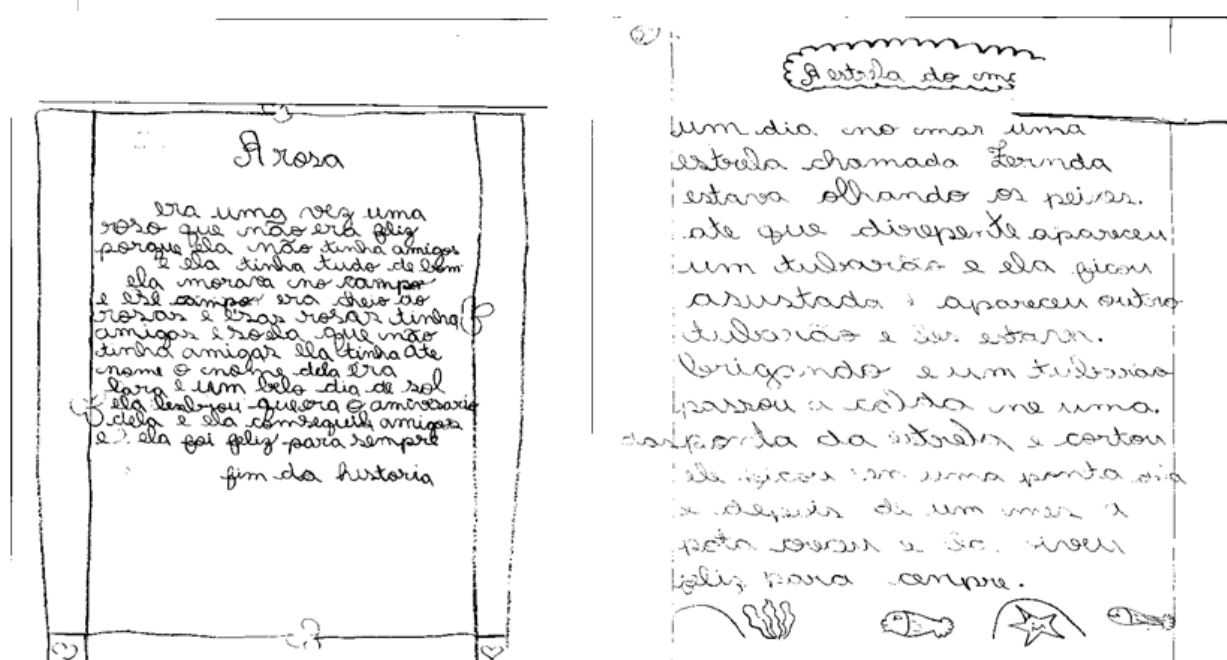 A rosa
era uma vez uma
roso que não era feliz
porque ela não tinha amigos
e ela tinha tudo de bom
ela morava no campo
e ese campo era cheio do
rosas e esas rosas tinha
amigas e soela que não
tinha amigas ela tinha ate
nome o nome dela era
lara e um belo dia de sol
ela lenbrou que era o aniversario
dela e ela conseguiu amigas
e ela foi feliz para sempre
fim da historia
A estrela do
um dia no mar uma
estrela chamada Fernnda
estava olhando os peixes.
ate que direpente apareceu
um tubarão e ela ficou
asustada apareceu outro
tubarão e
brigando e um tubarão
passou a na uma.
ponta da estrela e cortou
ela ficou uma ponta
e depois de um mes a
e viveu
feliz para cenpre.